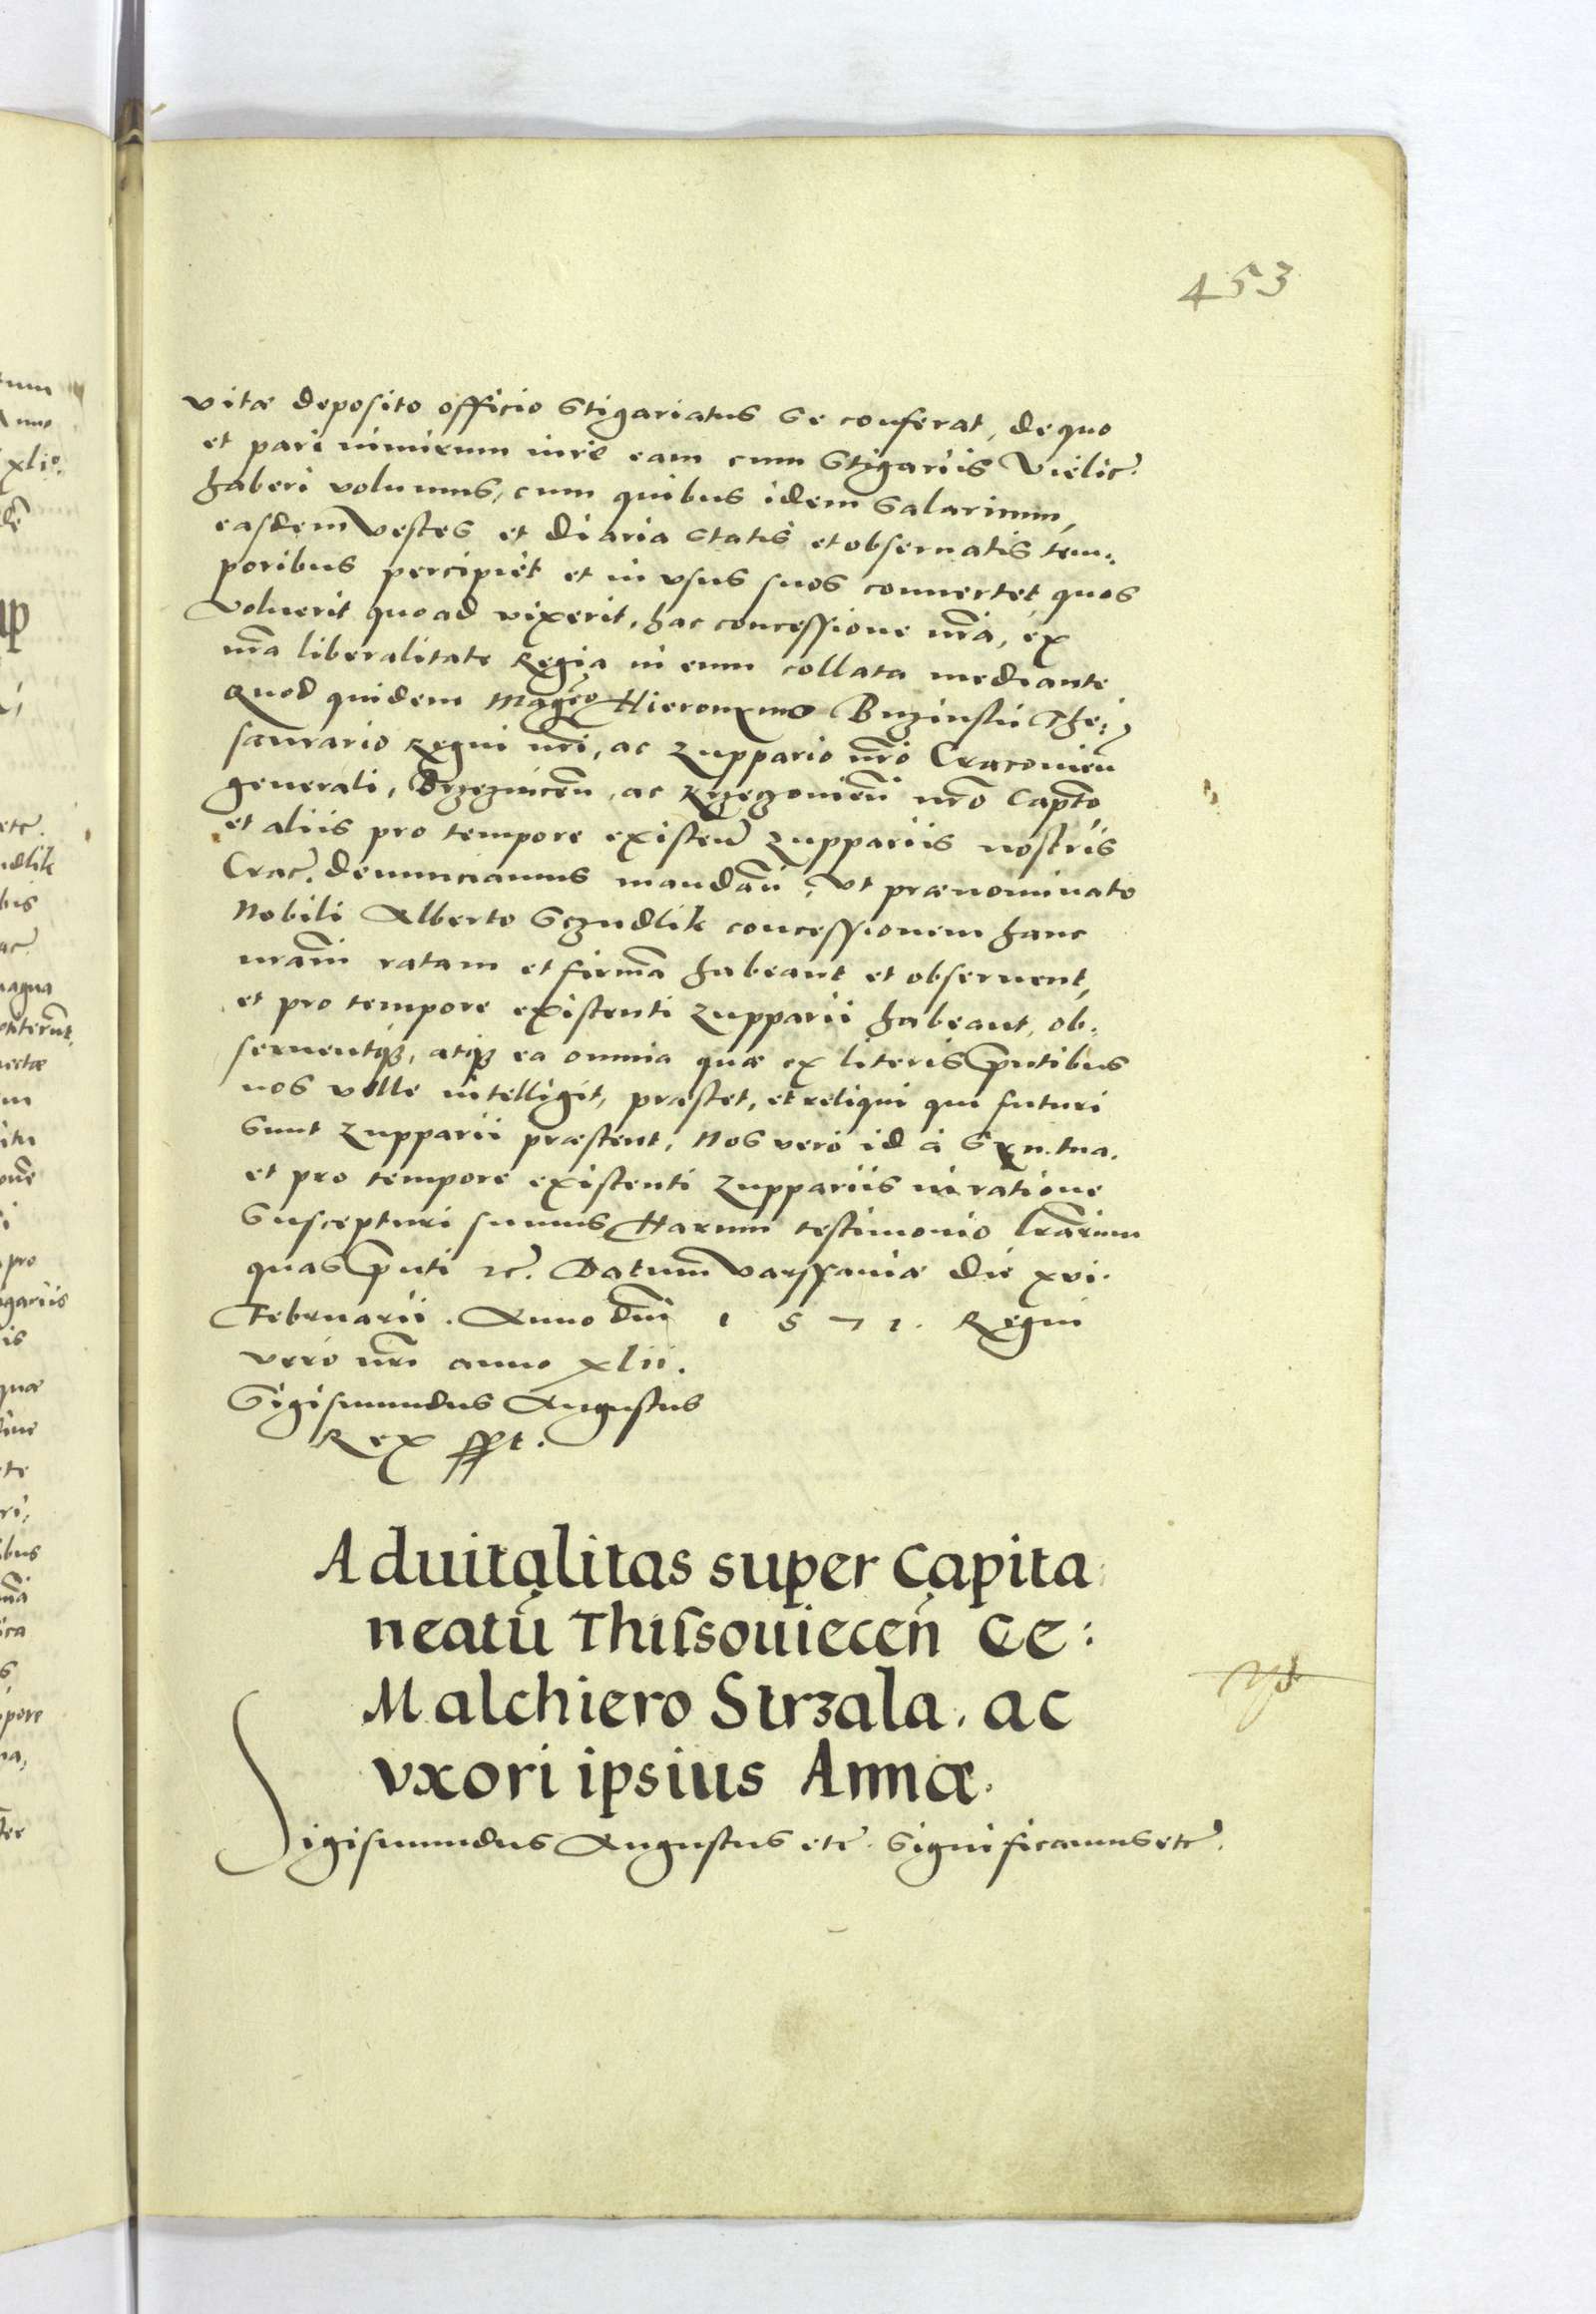 453
vitæ deposito officio Stigariatus se conferat, de quo
et pari nimirum iure eam cum Stigariis Vielic.
haberi volumus, cum quibus idem salarium,
easdem vestes et diaria statis et obseruatis tem:
poribus percipiet et in vsus suos conuertet quos
voluerit quoad vixerit, hac concessione nr̄a, ex
nr̄a liberalitate Regia in eum collata mediante
Quod quidem Magco Hieronymo Buzinski The:
saurario Regni nr̄i, ac Zuppario nr̄o Cracouieñ
generali, Brzezniceñ, ac Krzeczouieñ nr̄o Capto
et aliis pro tempore existeñ Zuppariis nostris
Crac. denunciamus mandañ, vt prænominato
Nobili Alberto Sczudlik concessionem hanc
nr̄am ratam et firmā habeant et obseruent,
et pro tempore existenti Zupparii habeant, ob:
seruentq3, atq3 ea omnia quæ ex literis p̄ntibus
nos velle intelligit, præstet, et reliqui qui futuri
sunt Zupparii præstent, Nos vero id à Syn. tua.
et pro tempore existenti Zuppariis in ratione
suscepturi sumus Harum testimonio lr̄arum
quas p̄nti zc. Datum Varssauiæ die xvi.
Februarii. Anno Dni 1 5 7 1. Regni
vero nr̄i anno xlii.
Sigismundus Augustus
Rex sst.
Aduitalitas super Capita
neatū Thissouieceñ Ge:
Malchiero Strzala. ac
vxori ipsius Annæ.
Sigismundus Augustus etc. Significamus etc.